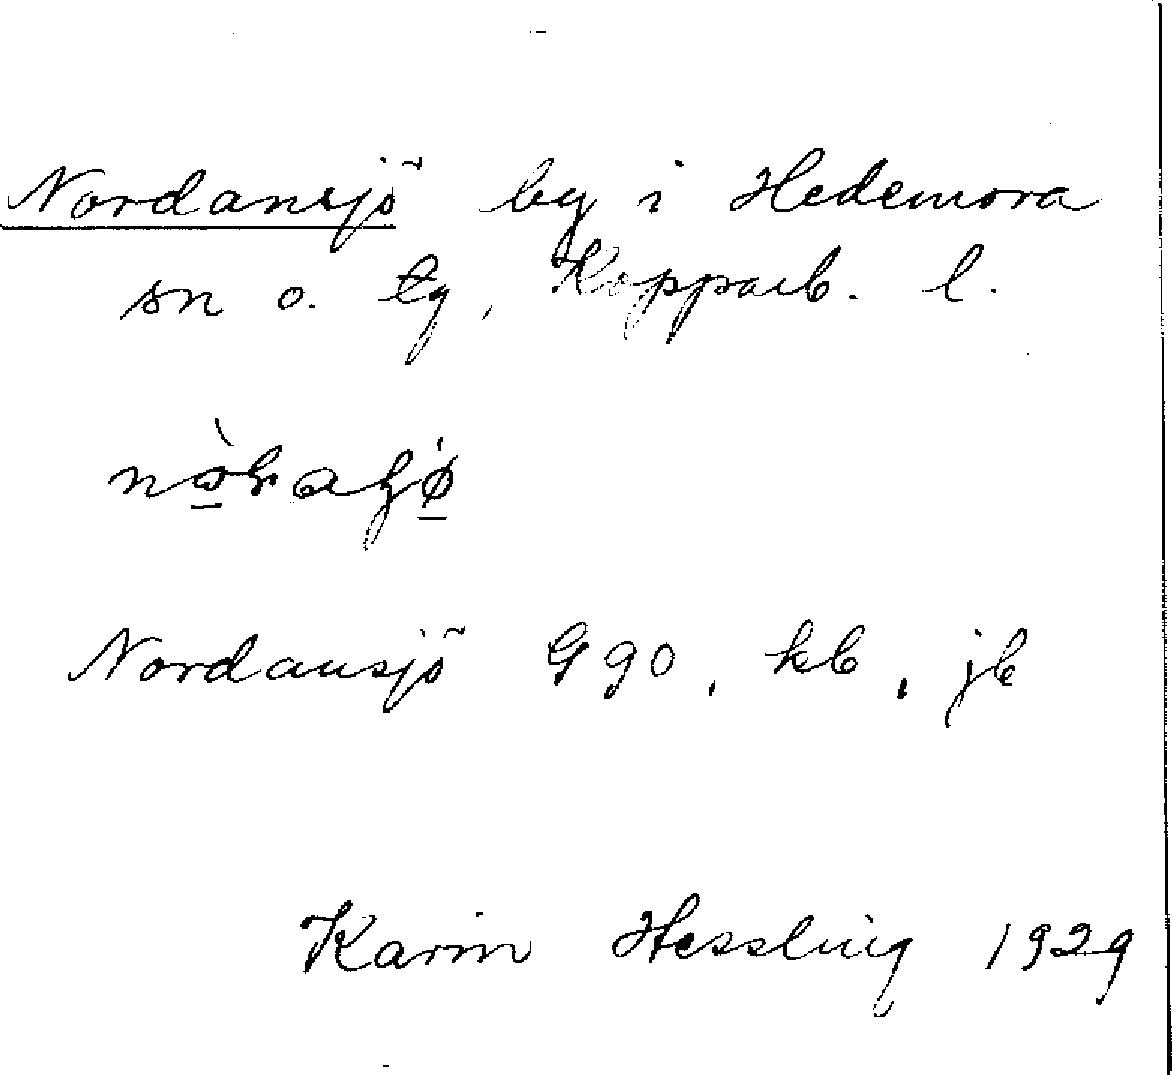 Nordansjö by i Hedemora
sn o. tg, Kopparb. l.
Nordansjö G 90, kb, jb
Karin Hessling 1929